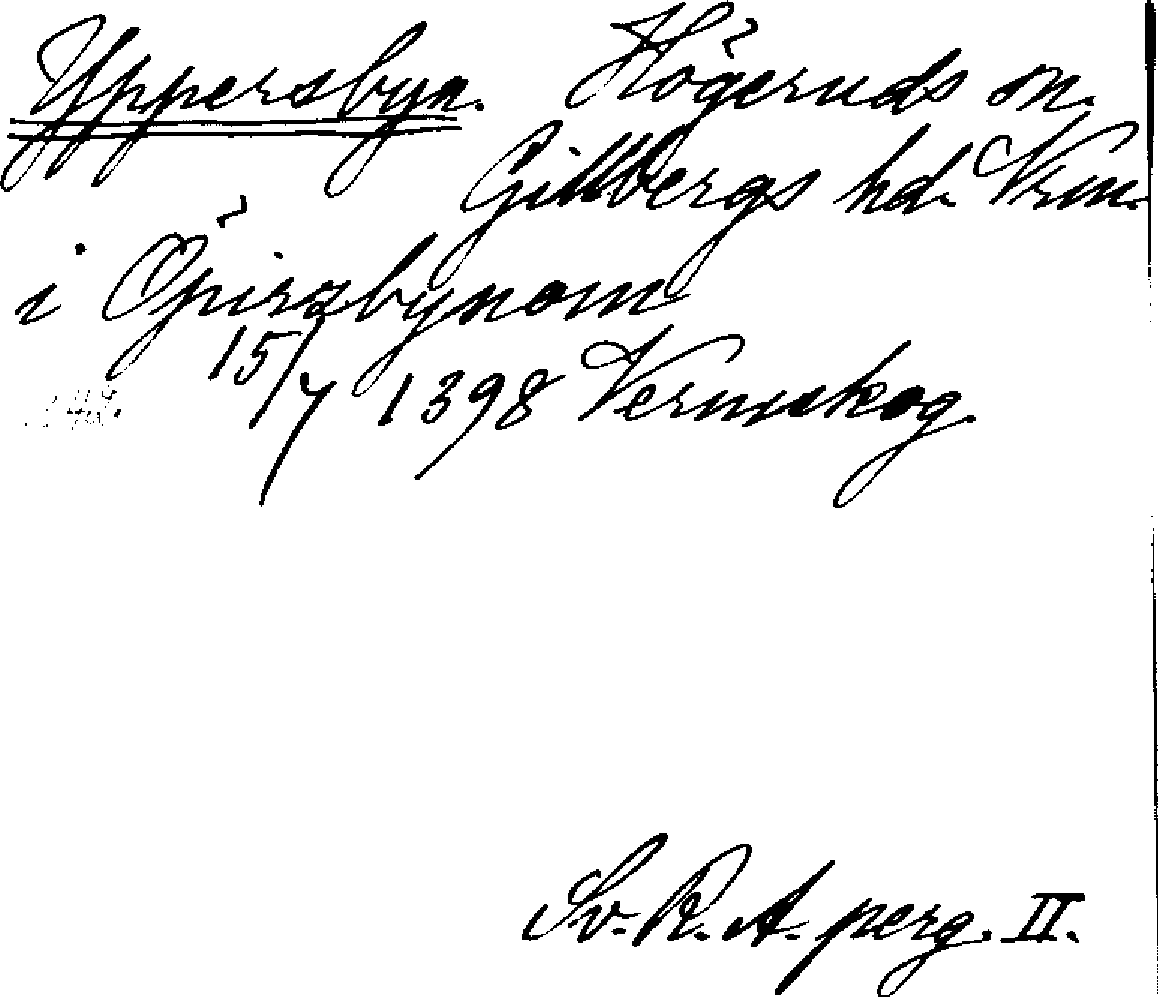 Yppersbyn. Högeruds sn.
Gillbergs hd. Vrm.
i Öpirsbynom
15/7 1398 Vermskog.
Sv. R. A. perg. II.